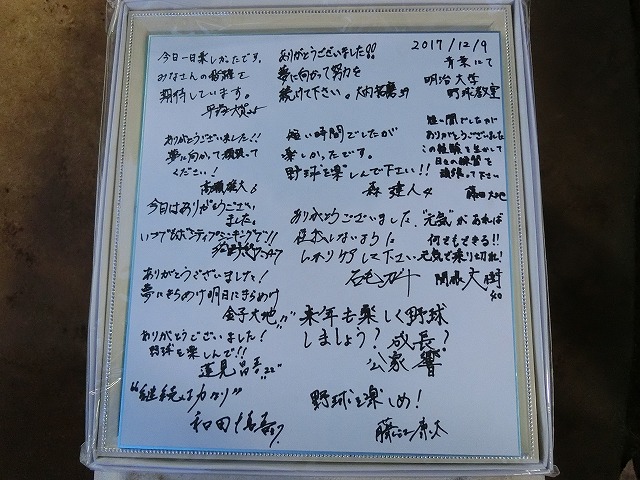 今日一日楽しかったです。
みなさんの活躍を
期待しています。
ありがとうございました!!
夢に向かって努力を
続けて下さい。
2017/12/9
青葉にて
明治大学
野球教室
ありがとうございました!!
夢に向かって頑張って
ください!
高瀬雄大 6
短い時間でしたが
楽しかったです。
野球を楽しんで下さい!!
森 建人 4
短い間でしたが
ありがとうございました
この経験を生かして
日々の練習を
頑張って下さい
藤田大地
今日はありがとうござい
ました。
いつでもポジティブシンキングで!!
ありがとうございました、
怪我しないように
しっかりケアして下さい
"元気"があれば
何でもできる!!
元気で乗り切れ!
ありがとうございました!
夢にきらめけ明日にきらめけ
金子大地
来年も楽しく野球
しましょう? 成長?
公家 響
ありがとうございました!
野球を楽しんで!!
蓮見
"継続は力なり"
和田
野球を楽しめ!
藤江康太